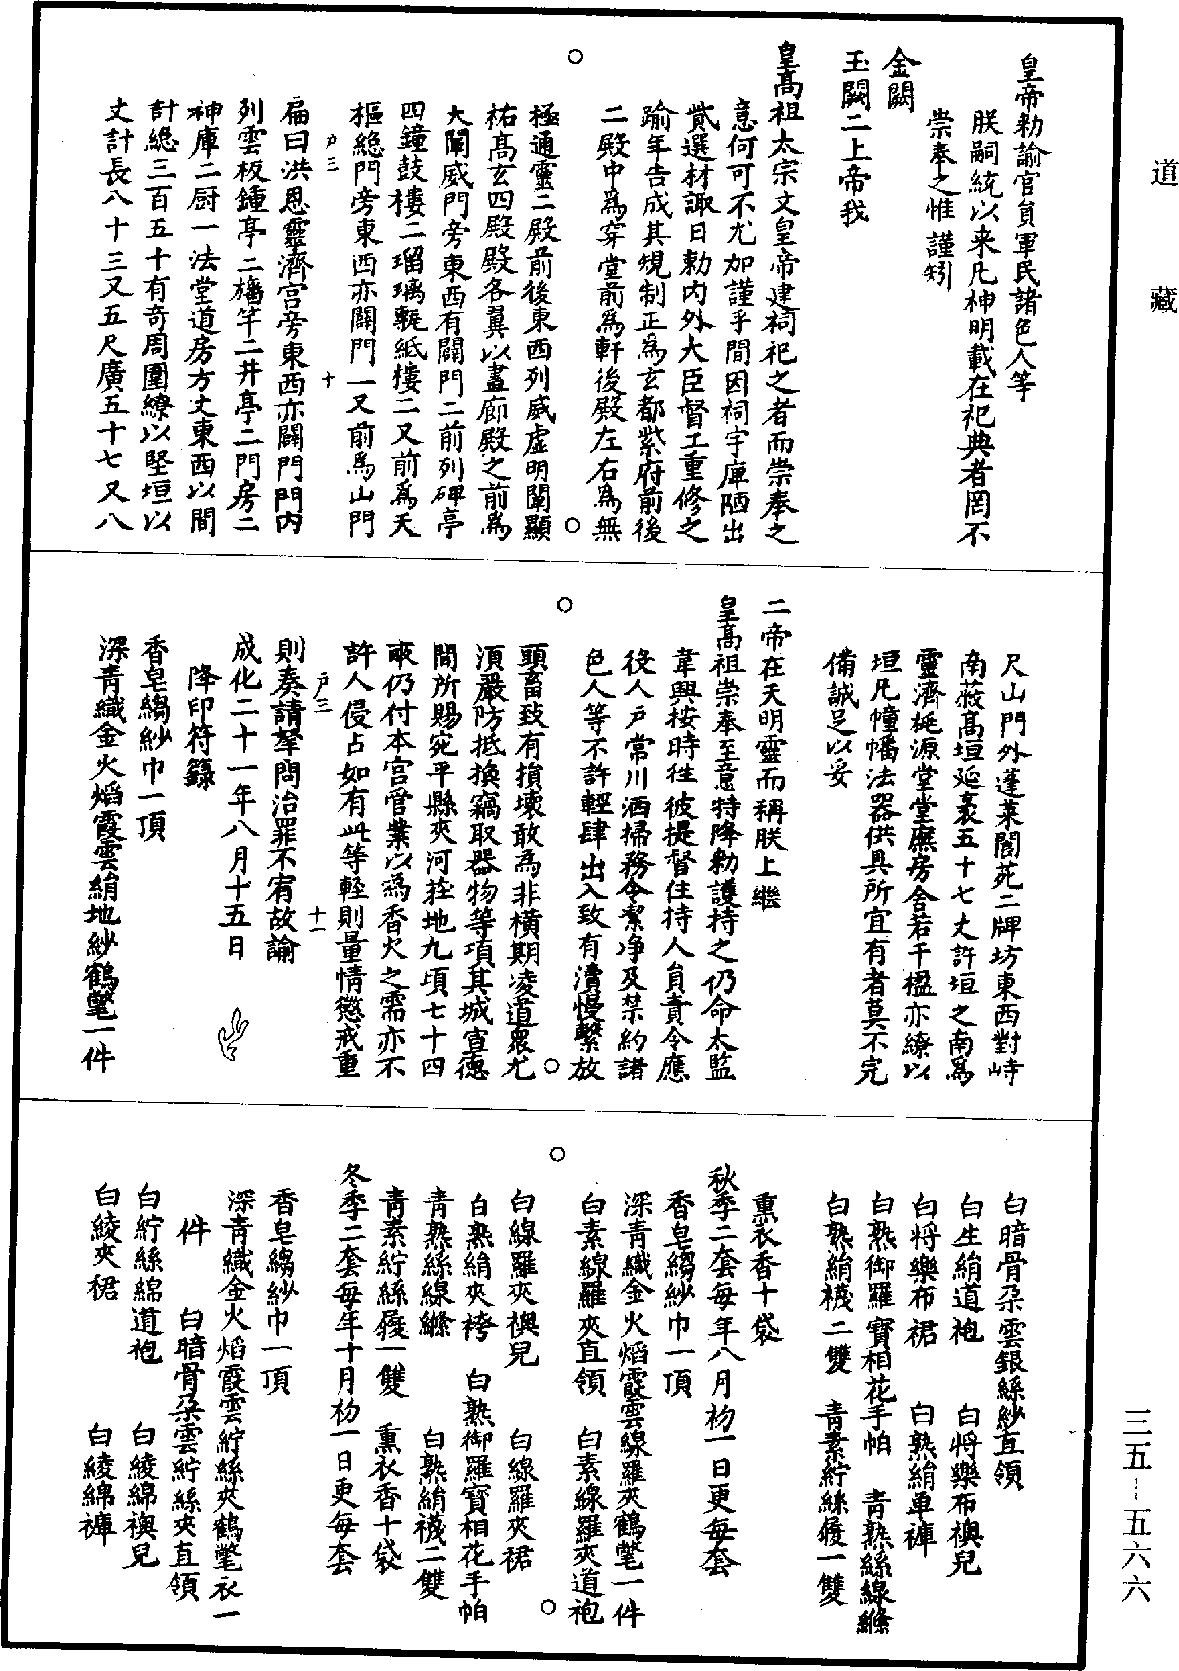 道藏
皇帝勑諭官員軍民諸色人等
朕嗣統以来凡神明載在祀典者罔不
崇奉之惟謹矧
金闕
玉闕二上帝我
皇高祖太宗文皇帝建祠祀之者而崇奉之
意何可不尤加謹乎間因祠宇庫陋出
貲選材諏日勑内外大臣督工重修之
踰年告成其規制正為玄都紫府前後
二殿中為穿堂前為軒後殿左右為無
極通靈二殿前後東西列威虛明闡顯
祐高玄四殿殿各翼以畫廊殿之前為
大闡威門旁東西有闢門二前列碑亭
四鐘鼓樓二瑠璃甎紙樓二又前為天
樞總門旁東西亦闢門一又前為山門
戸三 十
扁曰洪恩靈濟宫旁東西亦闢門門内
列雲板鍾亭二旛竿二井亭二門房二
神庫二厨一法堂道房方丈東西以間
計緫三百五十有奇周圍繚以堅垣以
丈計長八十三又五尺廣五十七又八
尺山門外蓬莱閬苑二牌坊東西對峙
南蔽高垣延袤五十七丈許垣之南為
靈濟㮛源堂堂廡房舍若干楹亦繚以
垣凡幢幡法器供具所宜有者莫不完
備誠足以妥
二帝在天明靈而稱朕上繼
皇高祖崇奉至意特降勑護持之仍命太監
韋興按時徃彼提督住持人員責令應
役人戸常川洒掃務令潔净及禁約諸
色人等不許輕肆出入致有瀆慢繫放
頭畜致有損壞敢為非横期凌道衆尤
湏嚴防抵換竊取器物等項其城宣德
間所賜宛平縣夾河莊地九頃七十四
畝仍付本宫管業以為香火之需亦不
許人侵占如有此等輕則量情懲戒重
戸三 十一
則奏請拏問治罪不宥故諭
成化二十一年八月十五日
降印符籙
香皂縐紗巾一頂
深青織金火熖霞雲絹地紗鶴氅一件
白暗骨朶雲銀絲紗直領
白生絹道袍 白将樂布襖兒
白将樂布裙 白熟絹單褲
白熟御羅寶相花手帕 青熟絲線縧
白熟絹襪二雙 青素紵絲履一雙
熏衣香十袋
秋季二套每年八月初一日更每套
香皂縐紗巾一頂
深青織金火熖霞雲線羅夾鶴氅一件
白素線羅夾直領 白素線羅夾道袍
白線羅夾襖兒 白線羅夾裙
白熟絹夾袴 白熟御羅寶相花手帕
青熟絲線縧 白熟絹襪二雙
青素紵絲履一雙 熏衣香十袋
冬季二套每年十月初一日更每套
香皂縐紗巾一頂
深青織金火熖霞雲紵絲夾鶴氅衣一
件 白暗骨朶雲紵絲夾直領
白紵絲綿道袍 白綾綿襖兒
白綾夾裙 白綾綿褲
三五--五六六